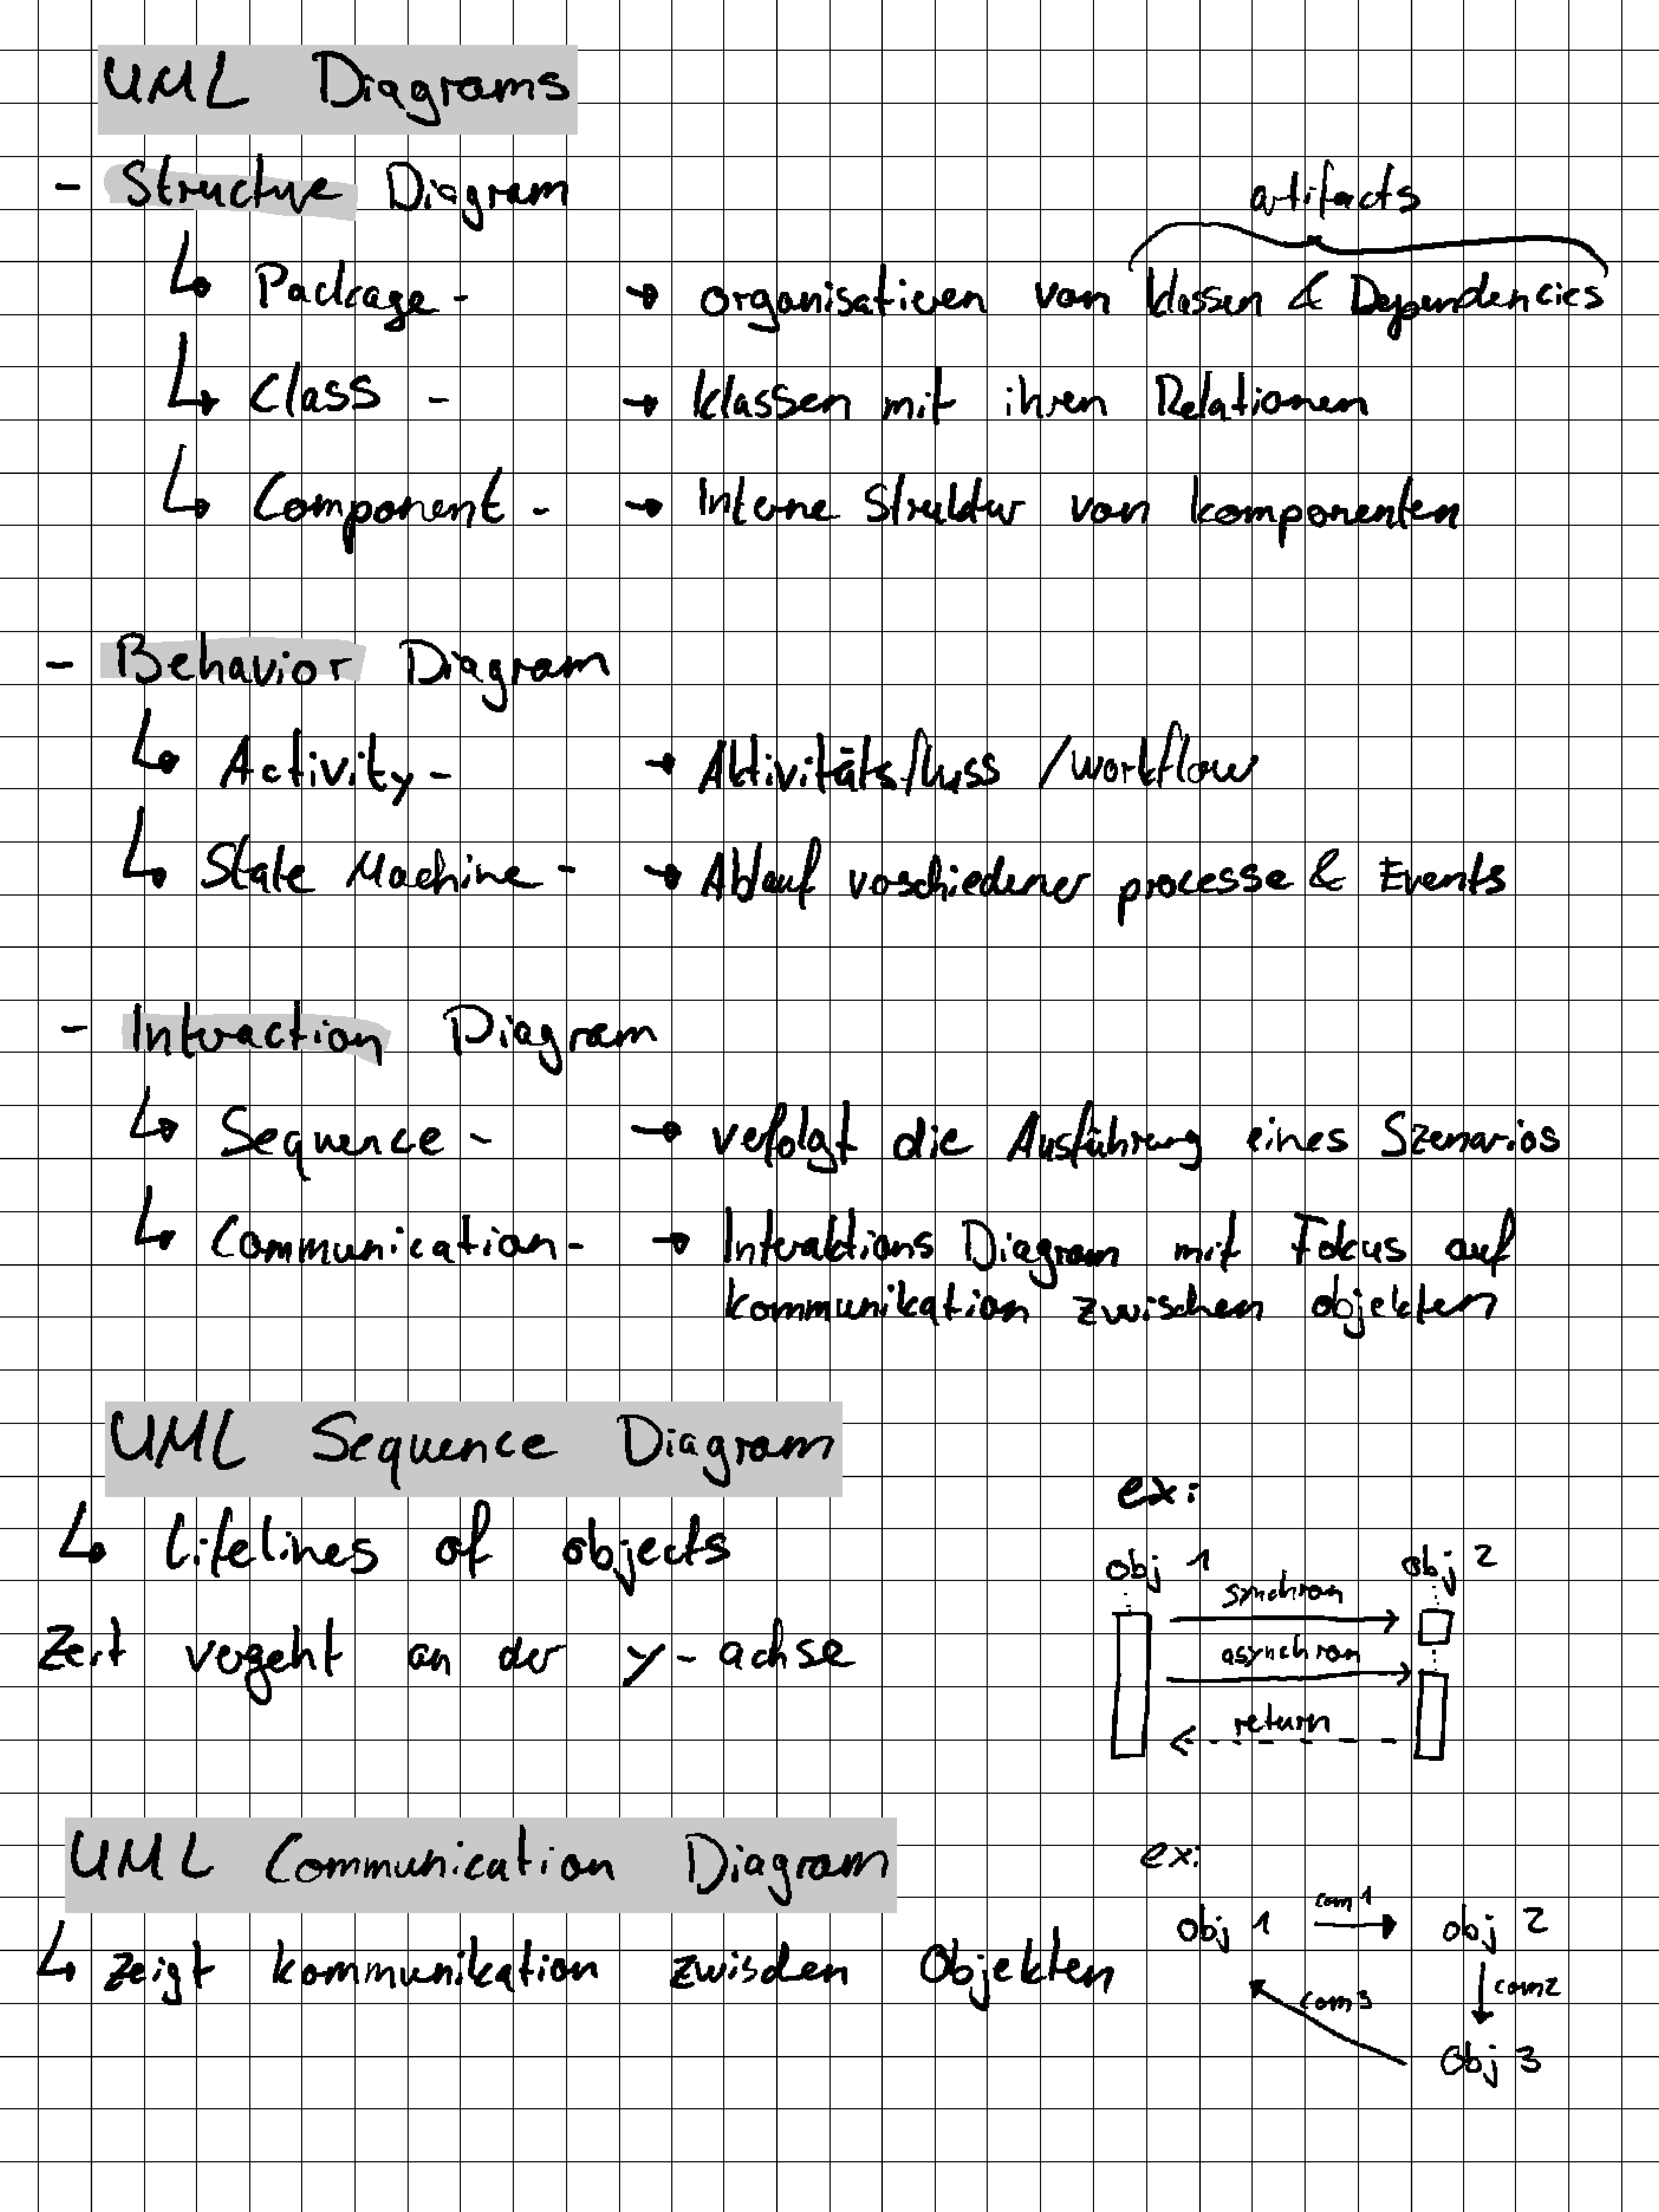 UML Diagrams
- Structure Diagram
artifacts
↳ Package - → organisatieren von Klassen & Dependencies
↳ Class - → Klassen mit ihren Relationen
↳ Component - → Interne Struktur von Komponenten
- Behavior Diagram
↳ Activity - → Aktivitätsfluss / workflow
↳ State Machine - → Ablauf verschiedener processe & Events
- Interaction Diagram
↳ Sequence - → verfolgt die Ausführung eines Szenarios
↳ Communication - → Interaktions Diagram mit Fokus auf
kommunikation zwischen objekten
UML Sequence Diagram
↳ Lifelines of objects
Zeit vergeht an der y-achse
ex:
obj 1 obj 2
synchron
asynchron
return
UML Communication Diagram
↳ zeigt kommunikation zwischen Objekten
ex:
obj 1 com 1 obj 2
com2
com3
Obj 3